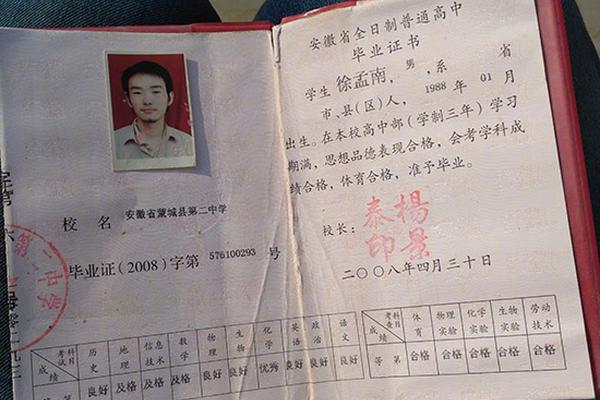 校 名 安徽省蒙城县第二中学
毕业证(2008)字第 576100293 号
考试科目 历史 地理 信息技术 数学 物理 生物 化学 英语 政治 语文
成绩 良好 及格 及格 及格 良好 良好 优秀 良好 良好 良好
第二中学
安徽省全日制普通高中
毕业证书
学生 徐孟南,男,系 省
市、县(区)人, 1988 年 01 月
出生。在本校高中部(学制三年)学习
期满,思想品德表现合格,会考学科成
绩合格,体育合格,准予毕业。
校长: 楊景泰印
二〇〇八年四月三十日
考查科目 体育 物理实验 化学实验 生物实验 劳动技术
成绩 等第 合格 合格 合格 合格 合格